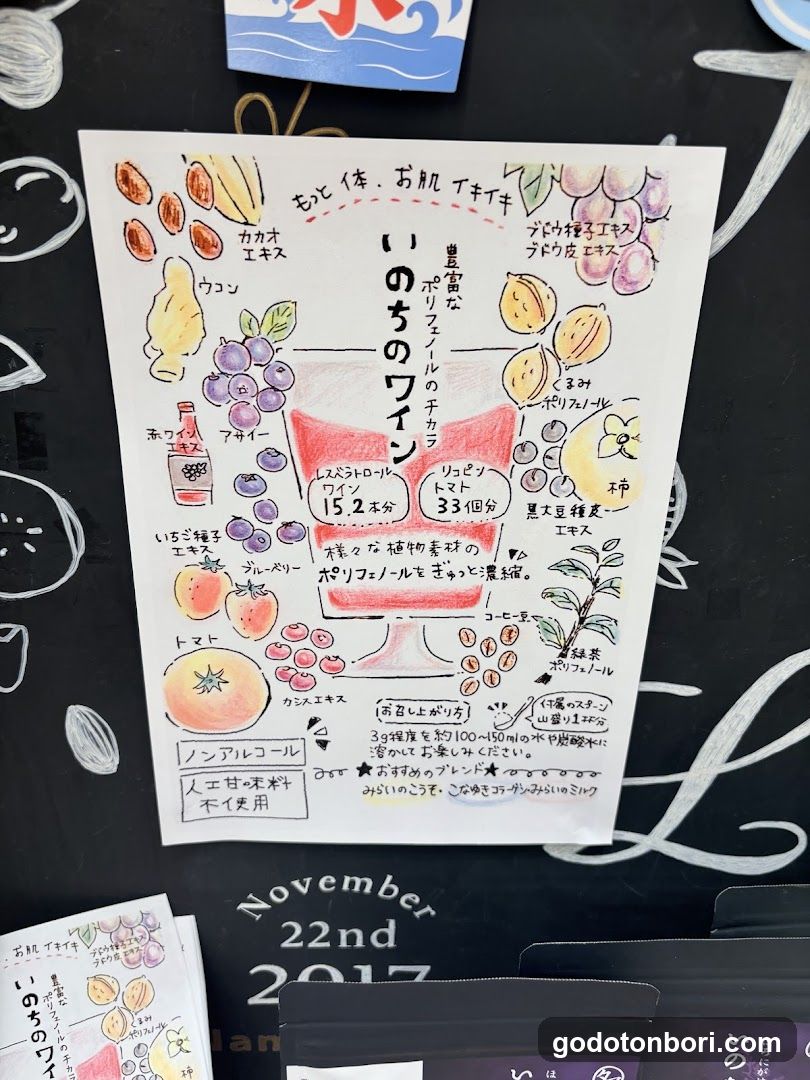 氷
もっと 体・お肌 イキイキ
カカオ
エキス
ブドウ種子エキス
ブドウ皮エキス
ウコン
豊富な
ポリフェノールのチカラ
いのちのワイン
くるみ
ポリフェノール
赤ワイン
エキス
アサイー
柿
レスベラトロール
ワイン
15.2本分
リコピン
トマト
33個分
黒大豆種皮
エキス
いちご種子
エキス
ブルーベリー
様々な植物素材の
ポリフェノールをぎゅっと濃縮。
コーヒー豆
緑茶
ポリフェノール
トマト
カシスエキス
お召し上がり方
付属のスプーン
山盛り1杯分
3g程度を約100~150mlの水や炭酸水に
溶かしてお楽しみください。
ノンアルコール
人工甘味料
不使用
★おすすめのブレンド★
みらいのこうそ・こなゆきコラーゲン・みらいのミルク
November
22nd
2017
お肌 イキイキ
ブドウ種子エキス
ブドウ皮エキス
豊富な
ポリフェノールのチカラ
いのちのワイ
くるみ
ポリフェノール
柿
godotonbori.com